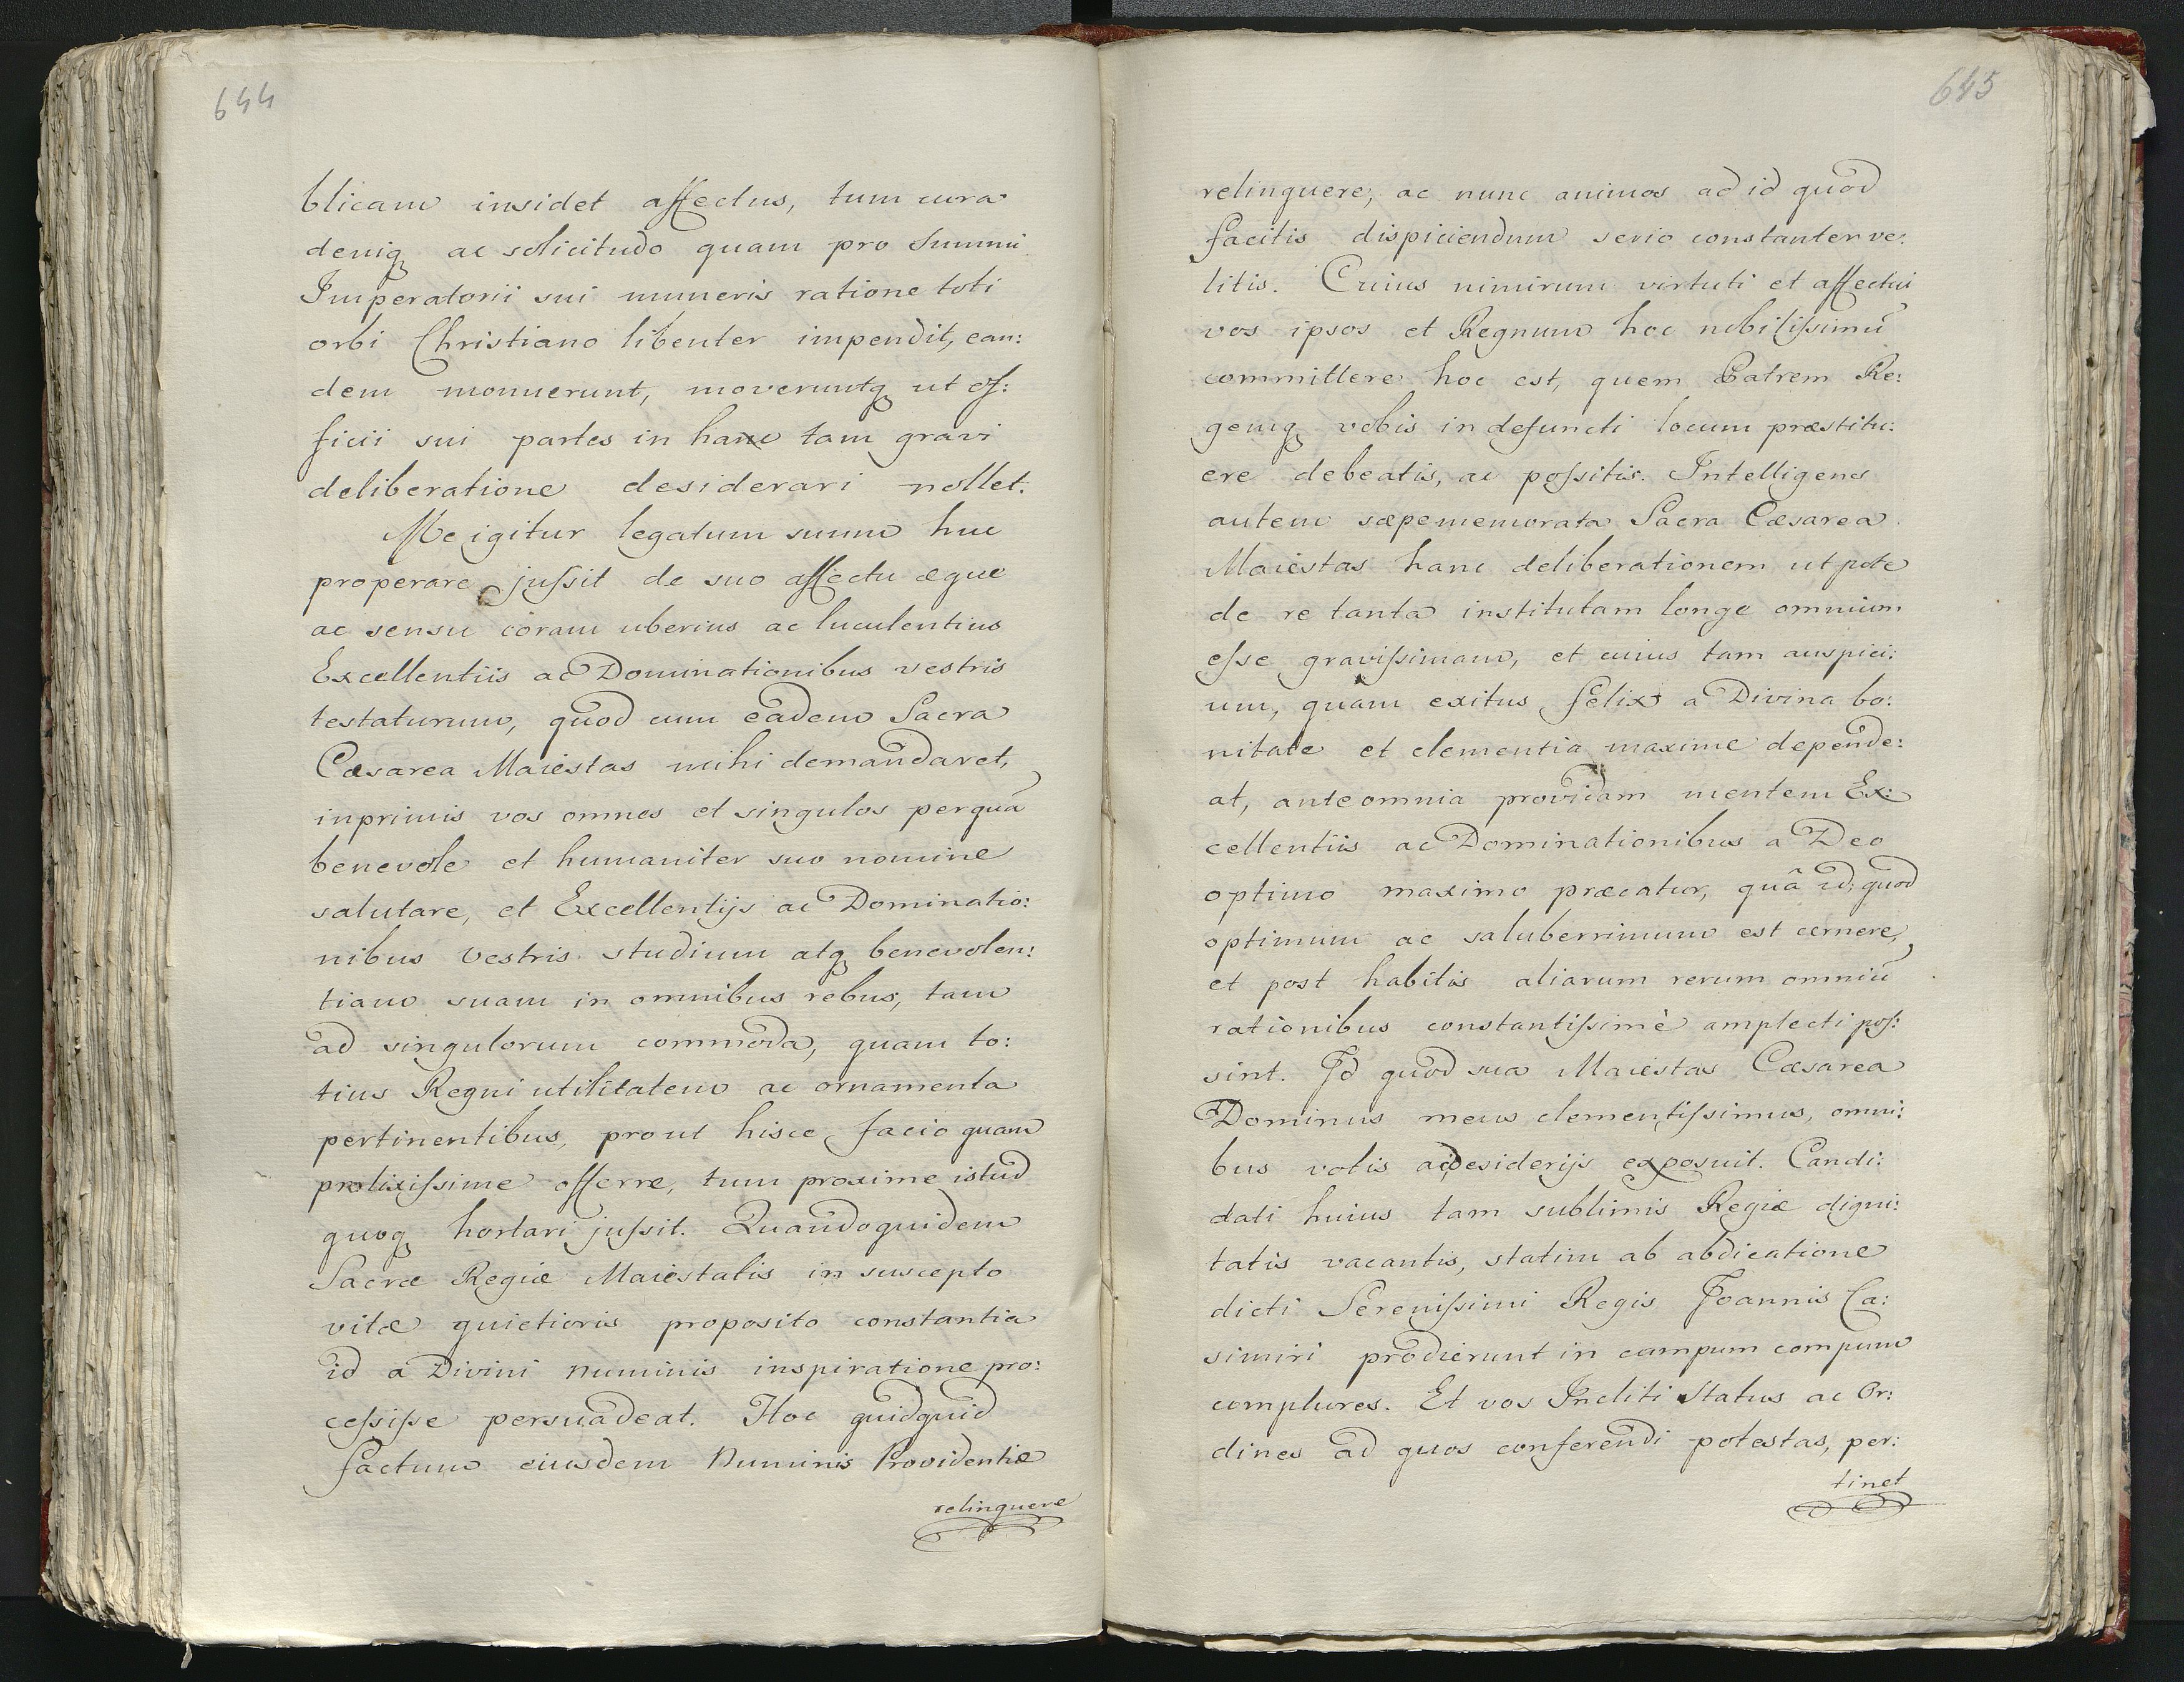 644
blicam insidet affectus, tum cura
deniq ac solicitudo quam pro summi
Imperatorii sui muneris ratione toti
orbi Christiano libenter impendit, ean:
dem monuerunt, moveruntq ut of:
ficii sui partes in hanc tam gravi
deliberatione desiderari nollet.
Me igitur legatum suum huc
properare jussit de suo affectu æque
ac sensu coram uberius ac luculentius
Excellentiis ac Dominationibus vestris
testaturum, quod cum eadem Sacra
Cæsarea Maiestas mihi demandaret,
inprimis vos omnes et singulos perquā
benevole et humaniter suo nomine
salutare, et Excellentijs ac Dominatio:
nibus vestris studium atq benevolen:
tiam suam in omnibus rebus, tam
ad singulorum commoda, quam to:
tius Regni utilitatem ac ornamenta
pertinentibus, prout hisce facio quam
prolixissime offerre, tum proxime istud
quoq hortari jussit. Quandoquidem
Sacræ Regiæ Maiestatis in suscepto
vitæ quietioris proposito constantia
id a Divini numinis inspiratione pro:
cessisse persuadeat. Hoc quidquid
factum eiusdem Numinis Providentiæ
relinquere
645
relinquere, ac nunc animos ad id quod
facitis dispiciendum serio constanter ve:
litis. Cuius nimirum virtuti et affectui
vos ipsos et Regnum hoc nobilissimū
committere hoc est, quem Patrem Re:
gemq vobis in defuncti locum præstitu:
ere debeatis, ac possitis. Intelligens
autem sæpememorata Sacra Cæsarea
Maiestas hanc deliberationem utpote
de re tanta institutam longe omnium
esse gravissimam, et cuius tam auspici:
um, quam exitus felix a Divina bo:
nitate et clementia maxime depende:
at, ante omnia providam mentem Ex:
cellentiis ac Dominationibus a Deo
optimo maximo præcatur, quâ id, quod
optimum ac saluberrimum est cernere,
et post habitis aliarum rerum omniū
rationibus constantissimè amplecti pos:
sint. Id quod sua Maiestas Cæsarea
Dominus meus clementissimus, omni:
bus votis ac desiderijs exposuit. Candi:
dati huius tam sublimis Regiæ digni:
tatis vacantis, statim ab abdicatione
dicti Serenissimi Regis Joannis Ca:
simiri prodierunt in campum compum
complures. Et vos Incliti Status ac Or:
dines ad quos conferendi potestas, per:
tinet